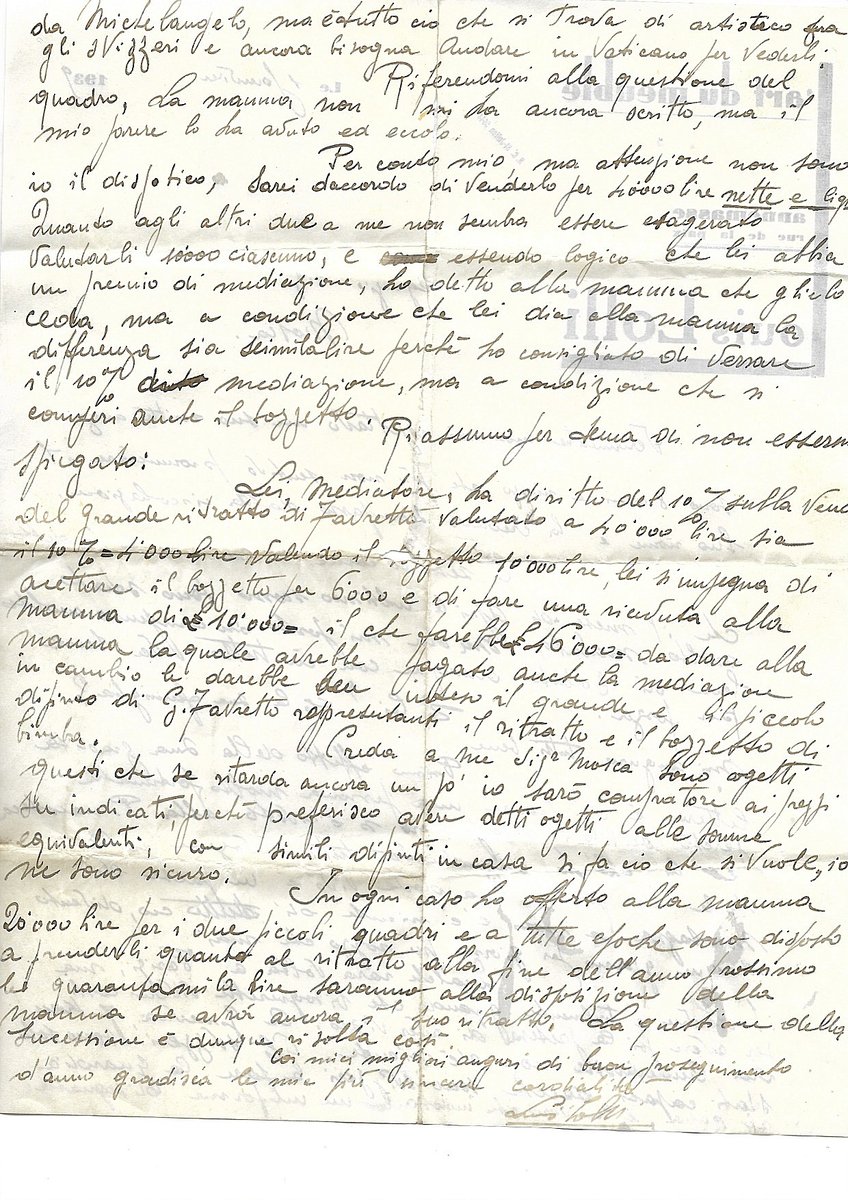 da Michelangelo, ma è tutto ciò che si trova di artistico fra
gli svizzeri e ancora bisogna andare in Vaticano per vederli.
Riferendomi alla questione del
quadro, la mamma non mi ha ancora scritto, ma il
mio parere lo ha avuto ed eccolo.
Per conto mio, ma attenzione non sono
io il dispotico, sarei daccordo di venderlo per 40000 lire nette e liq
Quando agli altri due a me non sembra essere esagerato
valutarli 10'000 ciascuno, e essendo logico che lei abbia
un premio di mediazione, ho detto alla mamma che glielo
ceda, ma a condizione che lei dia alla mamma la
differenza sia seimilalire perchè ho consigliato di versare
il 10% mediazione, ma a condizione che si
comperi anche il bozzetto.
Riassumo per tema di non essermi
spiegato:
Lei, mediatore, ha diritto del 10% sulla vend
del grande ritratto di Favretto valutato a 40'000 lire sia
il 10% = 4'000 lire valendo il bozzetto 10'000 lire, lei si impegna di
acettare il bozzetto per 6000 e di fare una riceduta alla
mamma di £ 10'000= il che farebbe £ 16'000= da dare alla
mamma la quale avrebbe pagato anche la mediazione
in cambio le darebbe inteso il grande e il piccolo
dipinto di G. Favretto rappresentanti il ritratto e il bozzetto di
bimba.
Creda a me Sigr Mosca sono ogetti
questi che se ritarda ancora un pò io sarò compratore ai prezzi
su indicati, perchè preferisco avere detti ogetti alle somme
equivalenti, con simili dipinti in casa si fa ciò che si vuole, io
ne sono sicuro.
In ogni caso ho offerto alla mamma
20'000 lire per i due piccoli quadri e a tutte epoche sono disposto
a prenderli quanto al ritratto alla fine dell'anno prossimo
le quarantamila lire saranno alla disposizione della
mamma se avrà ancora il suo ritratto. La questione della
sucessione è dunque risolta così.
Coi miei migliori auguri di buon proseguimento
d'anno gradisca le mie più sincere cordialità
Luis Lolli
l'art du meuble
annemasse
rue de la
Louis Lolli
1939